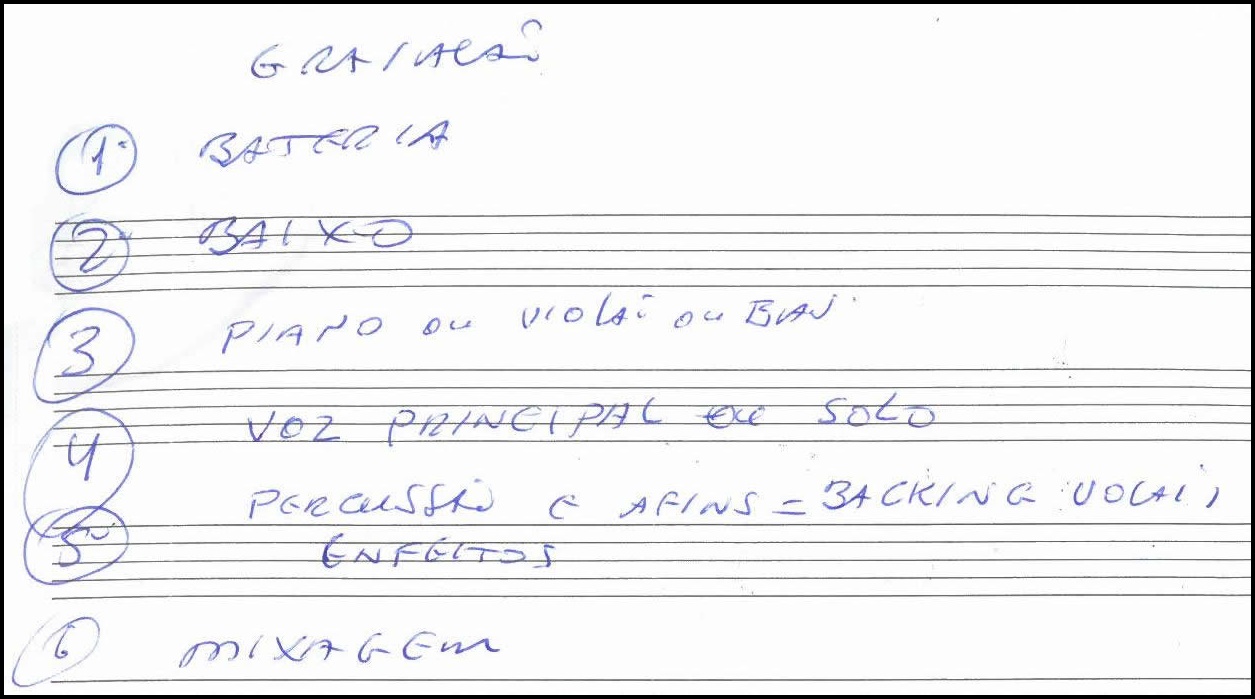 GRAVAÇÃO
1º BATERIA
2º BAIXO
3 PIANO OU VIOLÃO OU
4 VOZ PRINCIPAL OU SOLO
5º PERCUSSÃO E AFINS = BACKING VOCAIS,
ENFEITOS
6 MIXAGEM